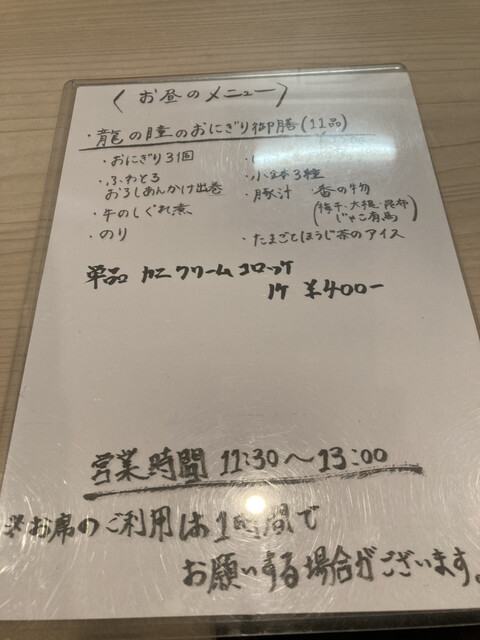 〈お昼のメニュー〉
・龍の瞳のおにぎり御膳(11品)
・おにぎり3個
・ふわとろ
おろしあんかけ出巻
・牛のしぐれ煮
・のり
・小鉢3種
・豚汁 ・香の物
(梅干、大根、昆布
じゃこ有馬)
・たまごとほうじ茶のアイス
単品 カニクリームコロッケ
1ケ ¥400-
営業時間 11:30〜13:00
※お席のご利用は1時間で
お願いする場合がございます。